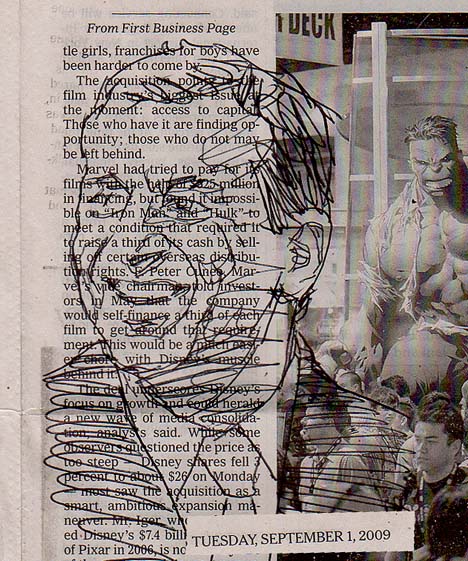 DECK
From First Business Page
tle girls, franchises for boys have
been harder to come by.
The acquisition points to the
film industry's biggest issue at
the moment: access to capital.
Those who have it are finding op-
portunity; those who do not may
be left behind.
Marvel had tried to pay for its
films with the help of $525 million
in financing, but found it impossi-
ble on "Iron Man" and "Hulk" to
meet a condition that required it
to raise a third of its cash by sell-
ing off certain overseas distribu-
tion rights. F. Peter Cuneo, Mar-
vel's vice chairman, told invest-
ors in May that the company
would self-finance a third of each
film to get around that require-
ment. This would be a much easi-
er chore with Disney's muscle
behind it.
The deal underscores Disney's
focus on growth and could herald
a new wave of media consolida-
tion, analysts said. While some
observers questioned the price as
too steep — Disney shares fell 3
percent to about $26 on Monday
— most saw the acquisition as a
smart, ambitious expansion ma-
neuver. Mr. Iger, who
ed Disney's $7.4 bill
of Pixar in 2006, is no
TUESDAY, SEPTEMBER 1, 2009